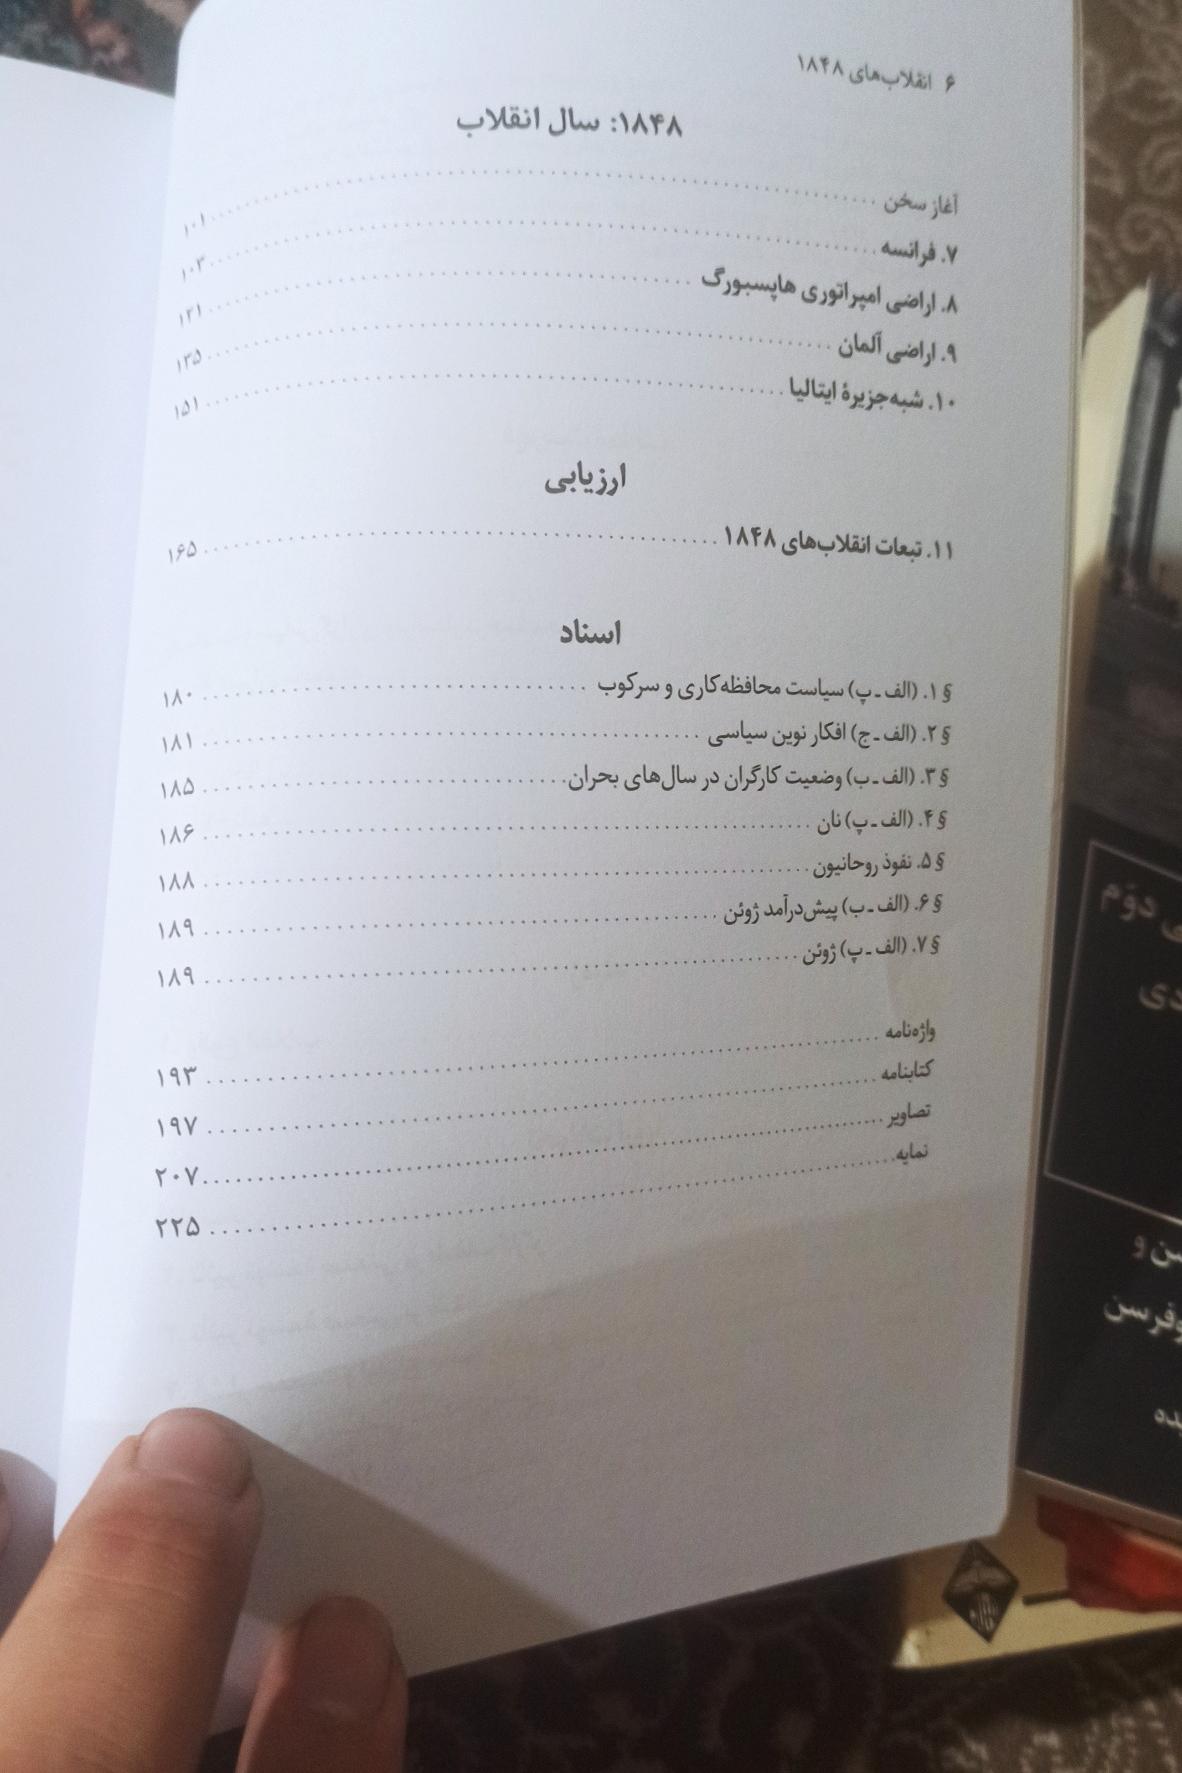 ۶ انقلاب‌های ۱۸۴۸
۱۸۴۸: سال انقلاب
آغاز سخن ........ ۱۰۱
۷. فرانسه ........ ۱۰۳
۸. اراضی امپراتوری هاپسبورگ ........ ۱۲۱
۹. اراضی آلمان ........ ۱۳۵
۱۰. شبه‌جزیرهٔ ایتالیا ........ ۱۵۱
ارزیابی
۱۱. تبعات انقلاب‌های ۱۸۴۸ ........ ۱۶۵
اسناد
§ ۱. (الف ـ پ) سیاست محافظه‌کاری و سرکوب ........ ۱۸۰
§ ۲. (الف ـ ج) افکار نوین سیاسی ........ ۱۸۱
§ ۳. (الف ـ ب) وضعیت کارگران در سال‌های بحران ........ ۱۸۵
§ ۴. (الف ـ پ) نان ........ ۱۸۶
§ ۵. نفوذ روحانیون ........ ۱۸۸
§ ۶. (الف ـ ب) پیش‌درآمد ژوئن ........ ۱۸۹
§ ۷. (الف ـ پ) ژوئن ........ ۱۸۹
واژه‌نامه ........ ۱۹۳
کتابنامه ........ ۱۹۷
تصاویر ........ ۲۰۷
نمایه ........ ۲۲۵
دوّم